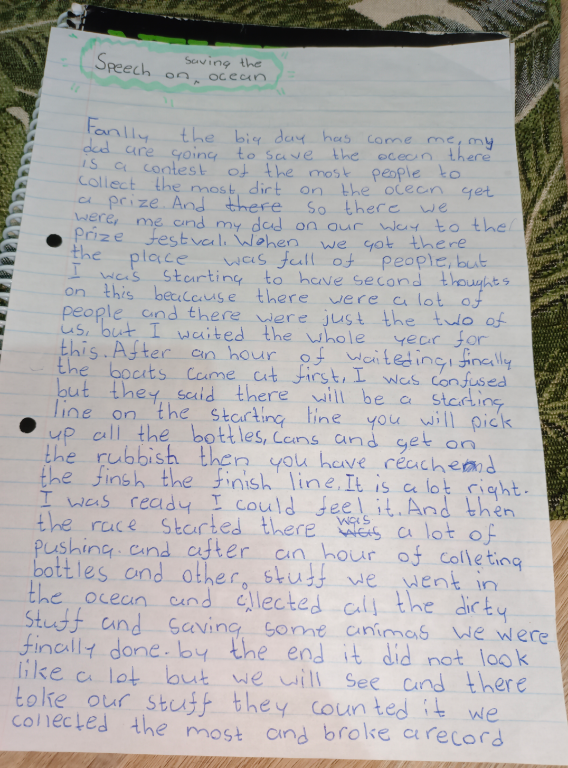 saving the
Speech on ocean
Fanlly the big day has come me, my
dad are going to save the ocean there
is a contest of the most people to
collect the most dirt on the ocean get
a prize. And there so there we
were, me and my dad on our way to the
prize festval. When we got there
the place was full of people, but
I was starting to have second thoughts
on this beacause there were a lot of
people and there were just the two of
us, but I waited the whole year for
this. After an hour of waiteding, finally
the boats came at first, I was confused
but they said there will be a starting
line on the starting line you will pick
up all the bottles, cans and get on
the rubbish then you have reached
the finsh the finish line. It is a lot right.
I was ready I could feel it. And then
the race started there was a lot of
pushing. and after an hour of colleting
bottles and other stuff we went in
the ocean and collected all the dirty
stuff and saving some animas we were
finally done. by the end it did not look
like a lot but we will see and there
toke our stuff they counted it we
collected the most and broke a record